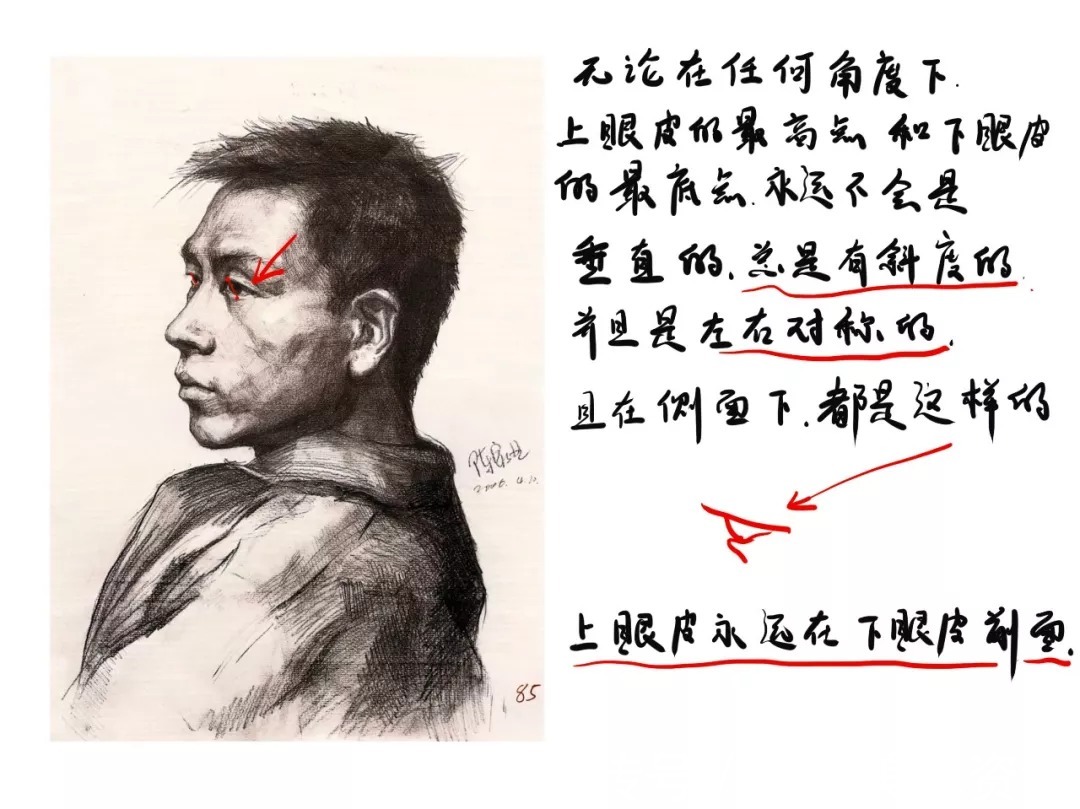 无论在任何角度下.
上眼皮的最高点和下眼皮
的最底点.永远不会是
垂直的、总是有斜度的.
并且是左右对称的.
且在侧面下.都是这样的
上眼皮永远在下眼皮前面.
85